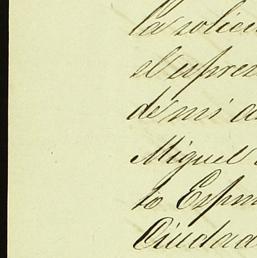 la solici
el espres
de mi a
Miguel
to Espin
Ciudad